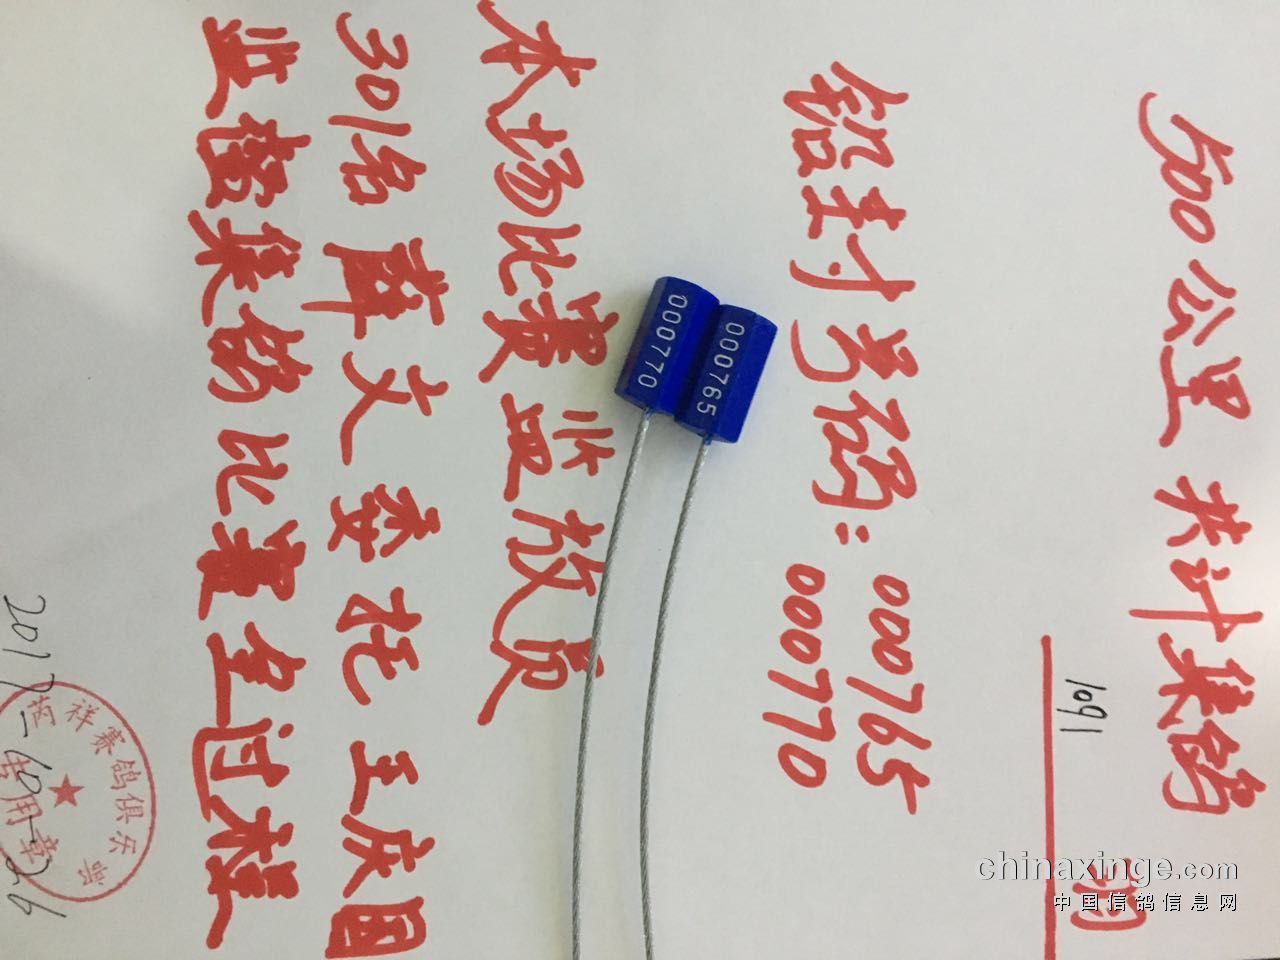 500公里 共计集鸽
1091
羽
铅封号码：000765
000770
000765
000770
本场比赛监放员
301名 薛文 委托 王庆国
监督集鸽比赛全过程
祥赛鸽俱乐
专用章
chinaxinge.com
中国信鸽信息网